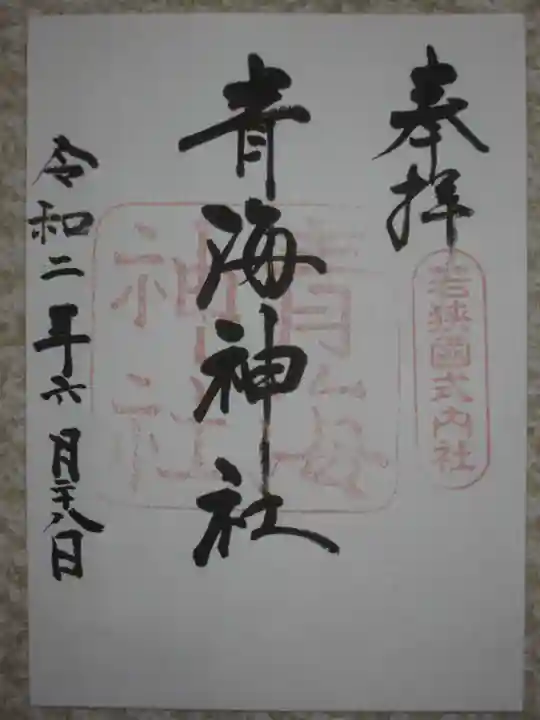 奉拝
若狭國式内社
青海神社
青海神社
令和二年六月二十八日